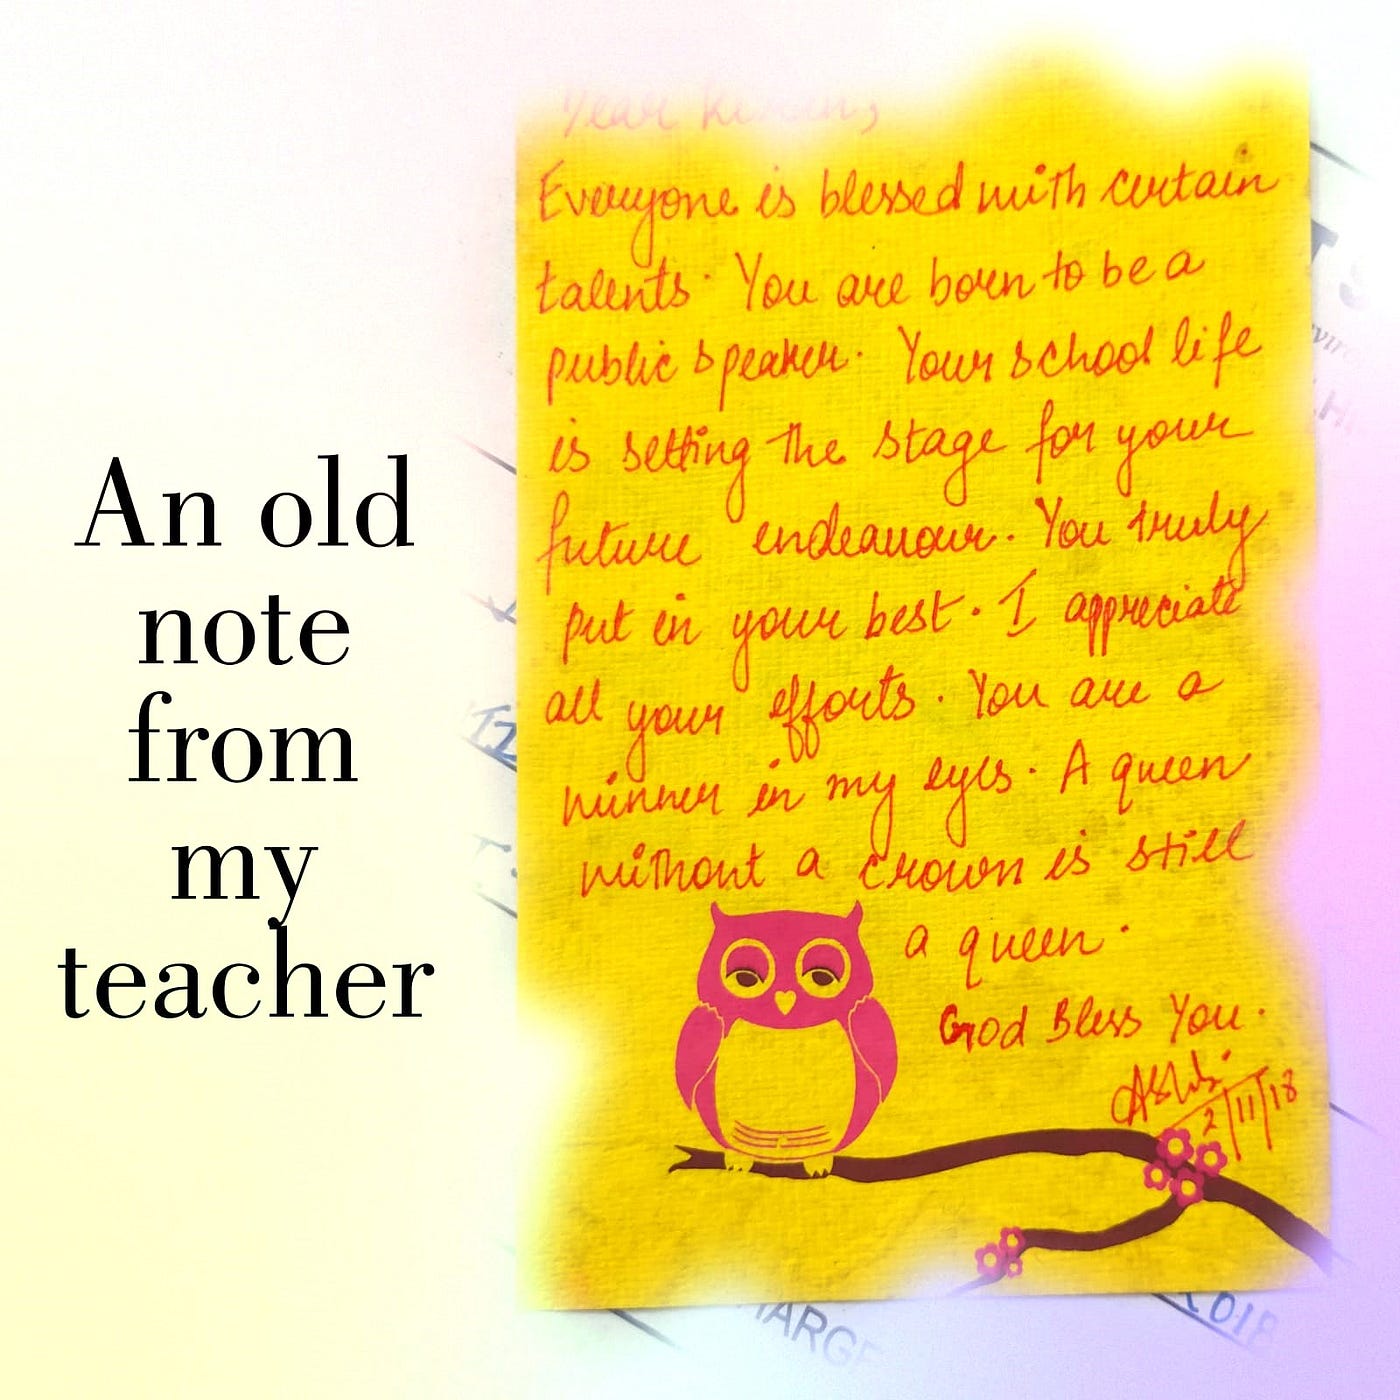 An old
note
from
my
teacher
Dear
Everyone is blessed with certain
talents. You are born to be a
public speaker. Your school life
is setting the stage for your
future endeavour. You truly
put in your best. I appreciate
all your efforts. You are a
winner in my eyes. A queen
without a crown is still
a queen.
God Bless You.
2/11/18